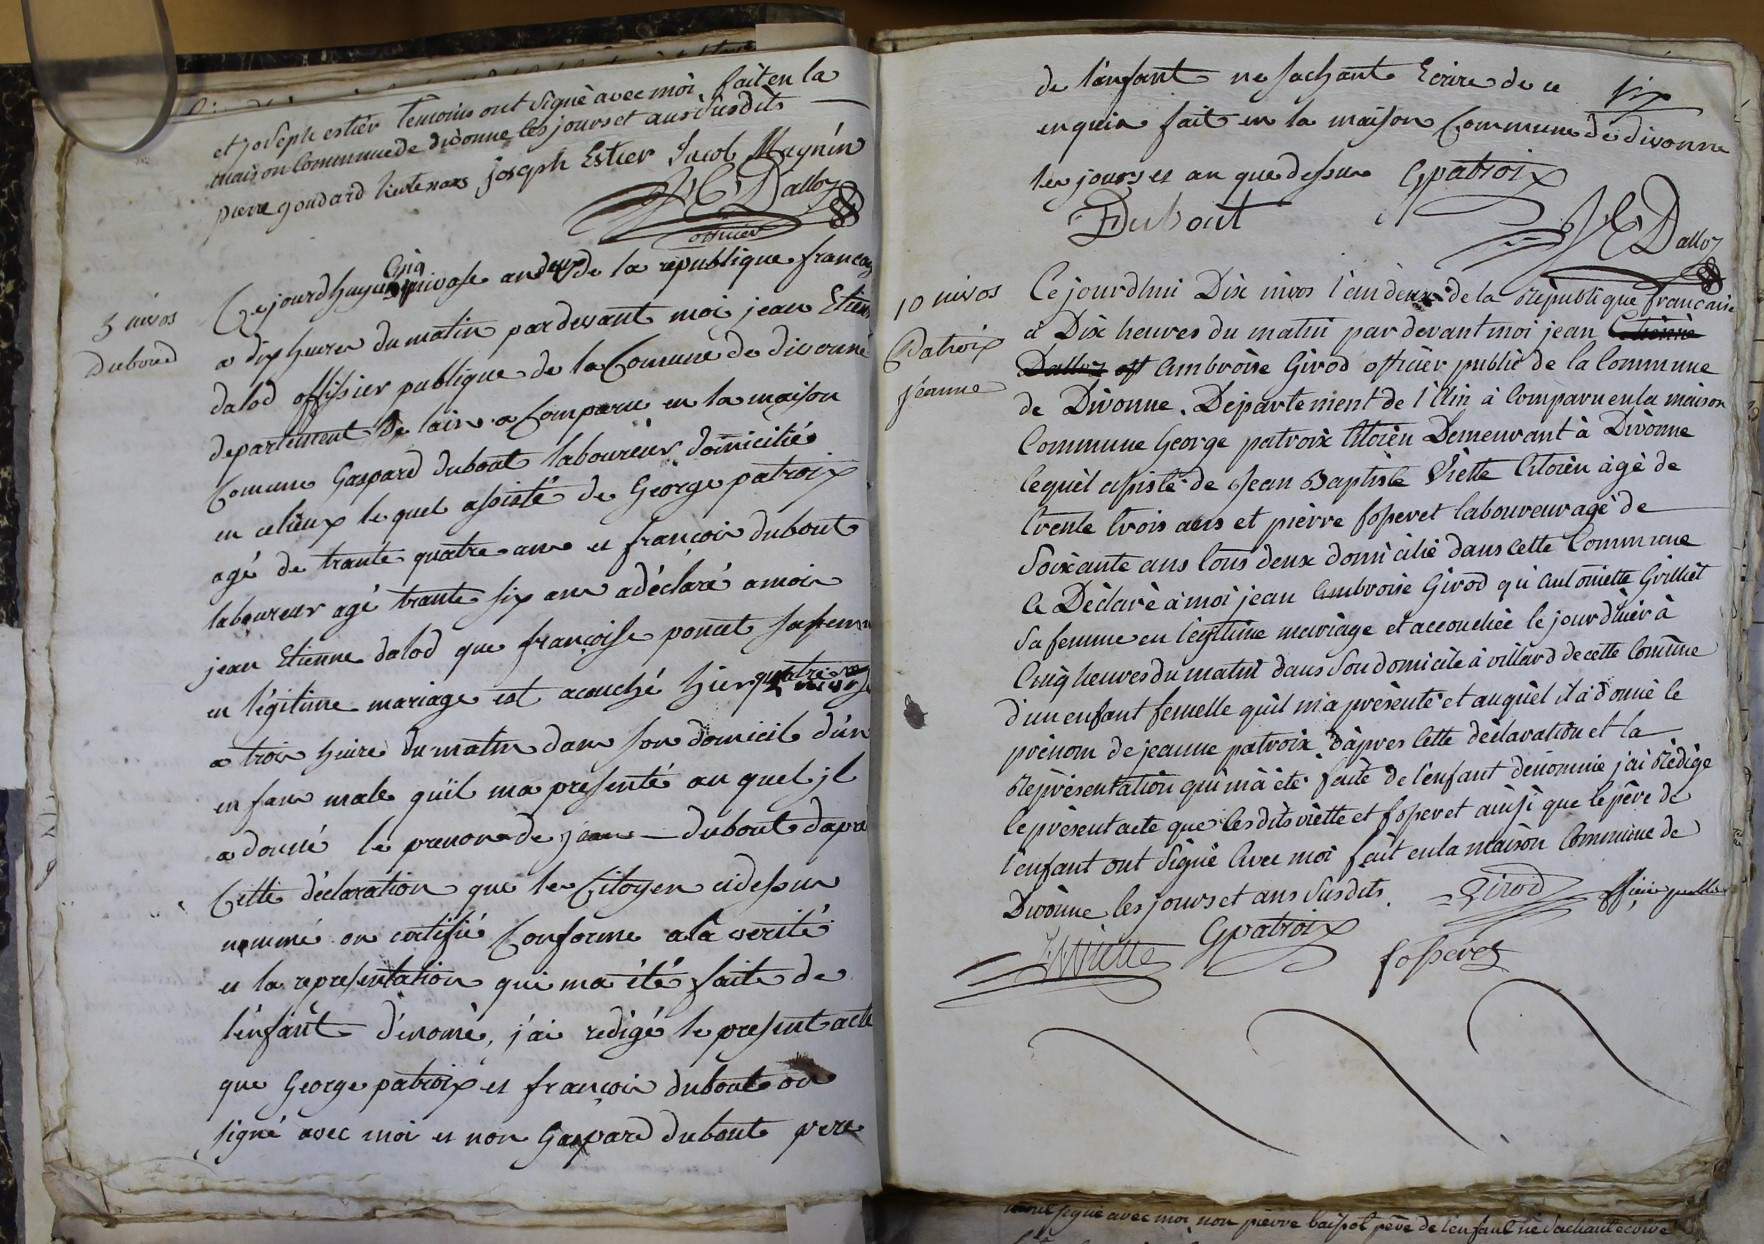 et joseph estier temoins ont signé avec moi, fait en la
maison Commune de divonne les jours et ans susdits
pierre goudard lieutenans joseph Estier Jacob Magnin
J E Dalloz
officier
5 nivos
Duboud
Cejourdhuy Cinq nivose an deux de la republique francay
a dix heures du matin pardevant moi jean Etien
dalod offisier publique de la Comune de divonne
departement de lain a Comparu en la maison
Comune Gaspard dubout laboureur domicilié
en ce lieux lequel assisté de George patroix
agé de trante quatre ans et françois dubout
laboureur agé trante six ans a déclaré a moi
jean Etienne dalod que françoise poncet safemm
en légitime mariage est acouché hier quatre nivose
a trois heure du matin dans son domicile d'un
enfans male qu'il ma presenté au quel jl
a donné le prenom de jean dubout dapre
Cette déclaration que les Citoyen cidessus
nommé on certifié Conforme a la verité
et la representation qui ma été faite de
l'enfant dénomé, j'ai redigé le present acte
que George patroix et françois dubout on
signé avec moi et non Gaspard dubout pere
six
de l'enfant ne sachant Ecrire de ce
enquis fait en la maison Commune de divonne
les jours et an que dessus Gpatroix
F Dubout
J E Dalloz
10 nivos
Patroix
jeanne
Cejourdhui Dix nivos l'an deux de la République francaise
a Dix heures du matin par devant moi jean Etienne
Dalloz off Ambroise Girod officier public de la Commune
de Divonne. Departement de l'Ain à Comparu en la maison
Commune George patroix Citoien Demeurant à Divonne
lequel assisté de Jean Baptiste Viette Citoien agé de
trente trois ans et pierre fosseret laboureur agé de
Soixante ans tous deux domicilié dans cette Commune
a Déclaré à moi jean Ambroise Girod qu'antoniette Grilliet
Sa femme en légitime mariage et accouchée le jour d'hier à
Cinq heures du matin dans Son domicile à villard de cette Comune
d'un enfant femelle qu'il m'a présenté et auquel il a donné le
prénom de jeanne patroix. d'apres Cette déclaration et la
Représentation qui m'a été faite de l'enfant dénommé j'ai Rédigé
le présent acte que les dits viette et fosseret ainsi que le père de
l'enfant ont Signé Avec moi fait en la maison Commune de
Divonne les jours et ans Susdits. Girod officier public
JBViette Gpatroix fosseret
signé avec moi non pierre baissot père de l'enfant ne Sachant ecrire